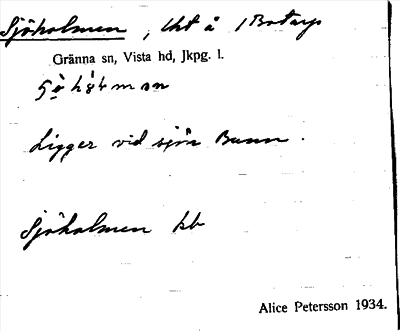 Sjöholmen, lht å 1 Botarp
Gränna sn, Vista hd, Jkpg. l.
Ligger vid sjön Bunn.
Sjöholmen kb
Alice Petersson 1934.